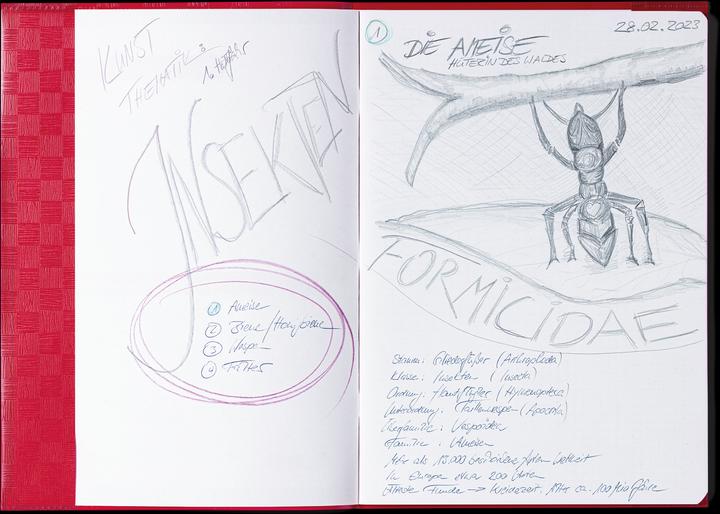 KUNST
THEMATIK:
INSEKTEN
1 Ameise
2 Biene/Honigbiene
3 Wespe
4 Falter
1
28.02.2023
DIE AMEISE
HÜTERIN DES WALDES
FORMICIDAE
Stamm: Gliederfüßer (Arthropoda)
Klasse: Insekten (Insecta)
Ordnung: Hautflügler (Hymenoptera)
Unterordnung: Taillenwespen (Apocrita)
Überfamilie: Vespoidea
Familie: Ameisen
Mehr als 13.000 Arten Weltweit
In Europa etwa 200 Arten
Älteste Funde → Kreidezeit. Alter ca. 100 Mio Jahre